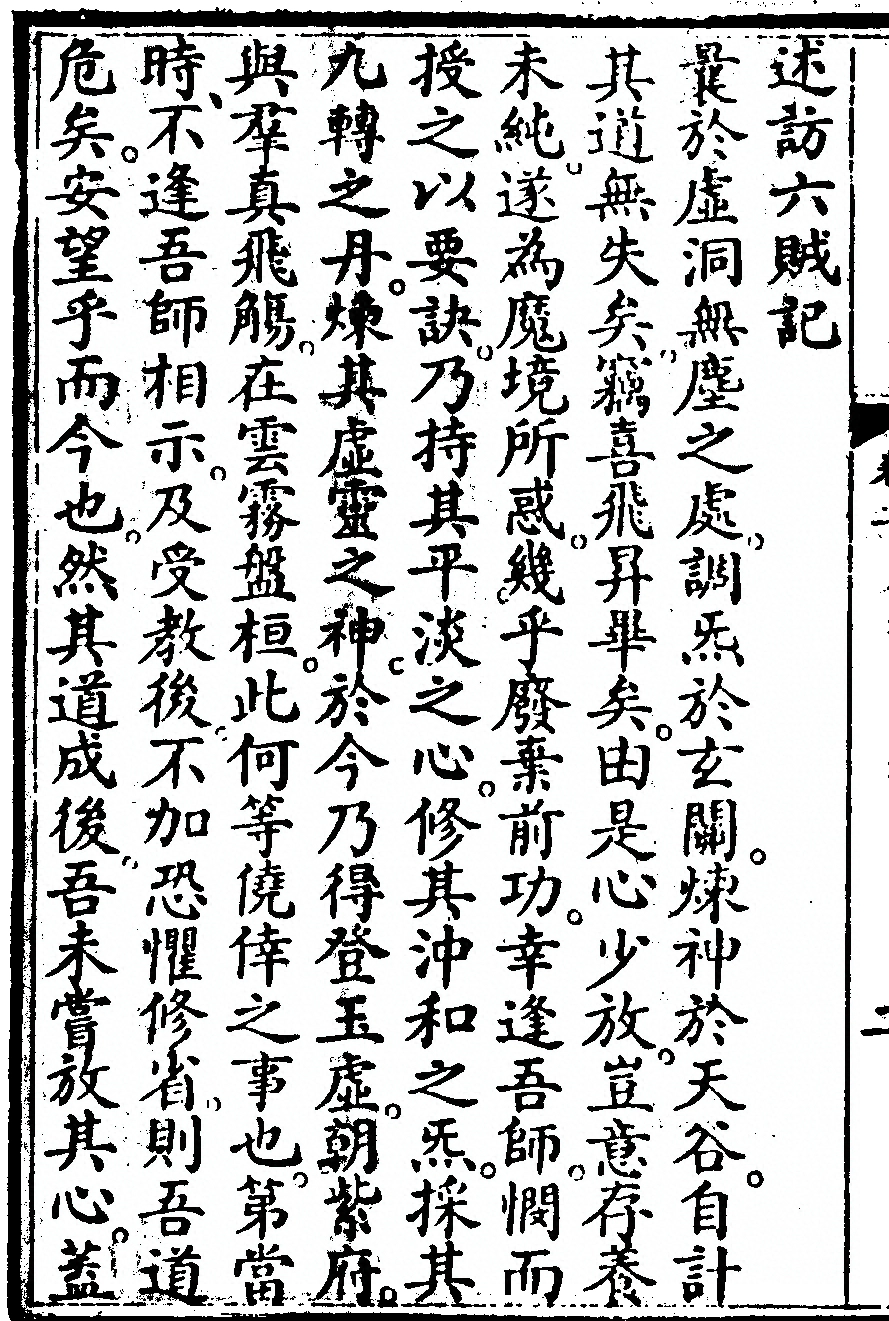 述訪六賊記
曩於虛洞無塵之處調炁於玄關。煉神於天谷。自計
其道無失矣。竊喜飛昇畢矣。由是心少放。豈意存養
未純。遂為魔境所惑。幾乎廢棄前功。幸逢吾師。憫而
授之以要訣。乃持其平淡之心。修其沖和之炁。採其
九轉之丹。煉其虛靈之神。於今乃得登玉虛。朝紫府。
與羣真飛觴。在雲霧盤桓。此何等僥倖之事也。第當
時、不逢吾師相示。及受教後。不加恐懼修省。則吾道
危矣。安望乎而今也。然其道成後。吾未嘗放其心。蓋
二